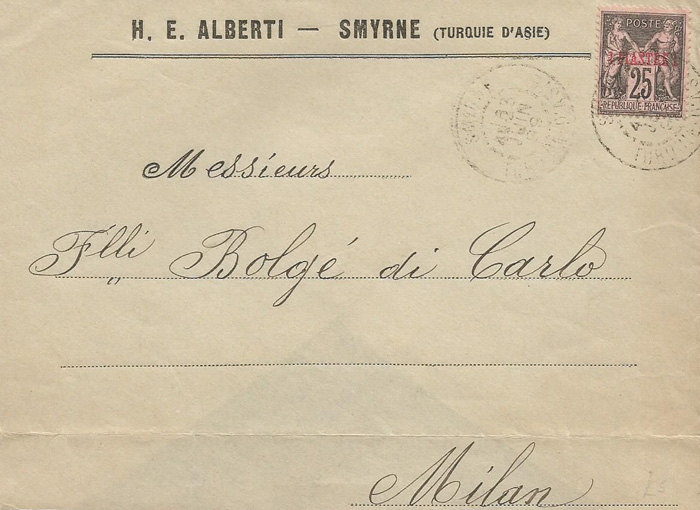 H. E. ALBERTI — SMYRNE (TURQUIE D'ASIE)
POSTE
1 PIASTRE 1
25
RÉPUBLIQUE FRANÇAISE
Messieurs
F'lli Bolgé di Carlo
Milan